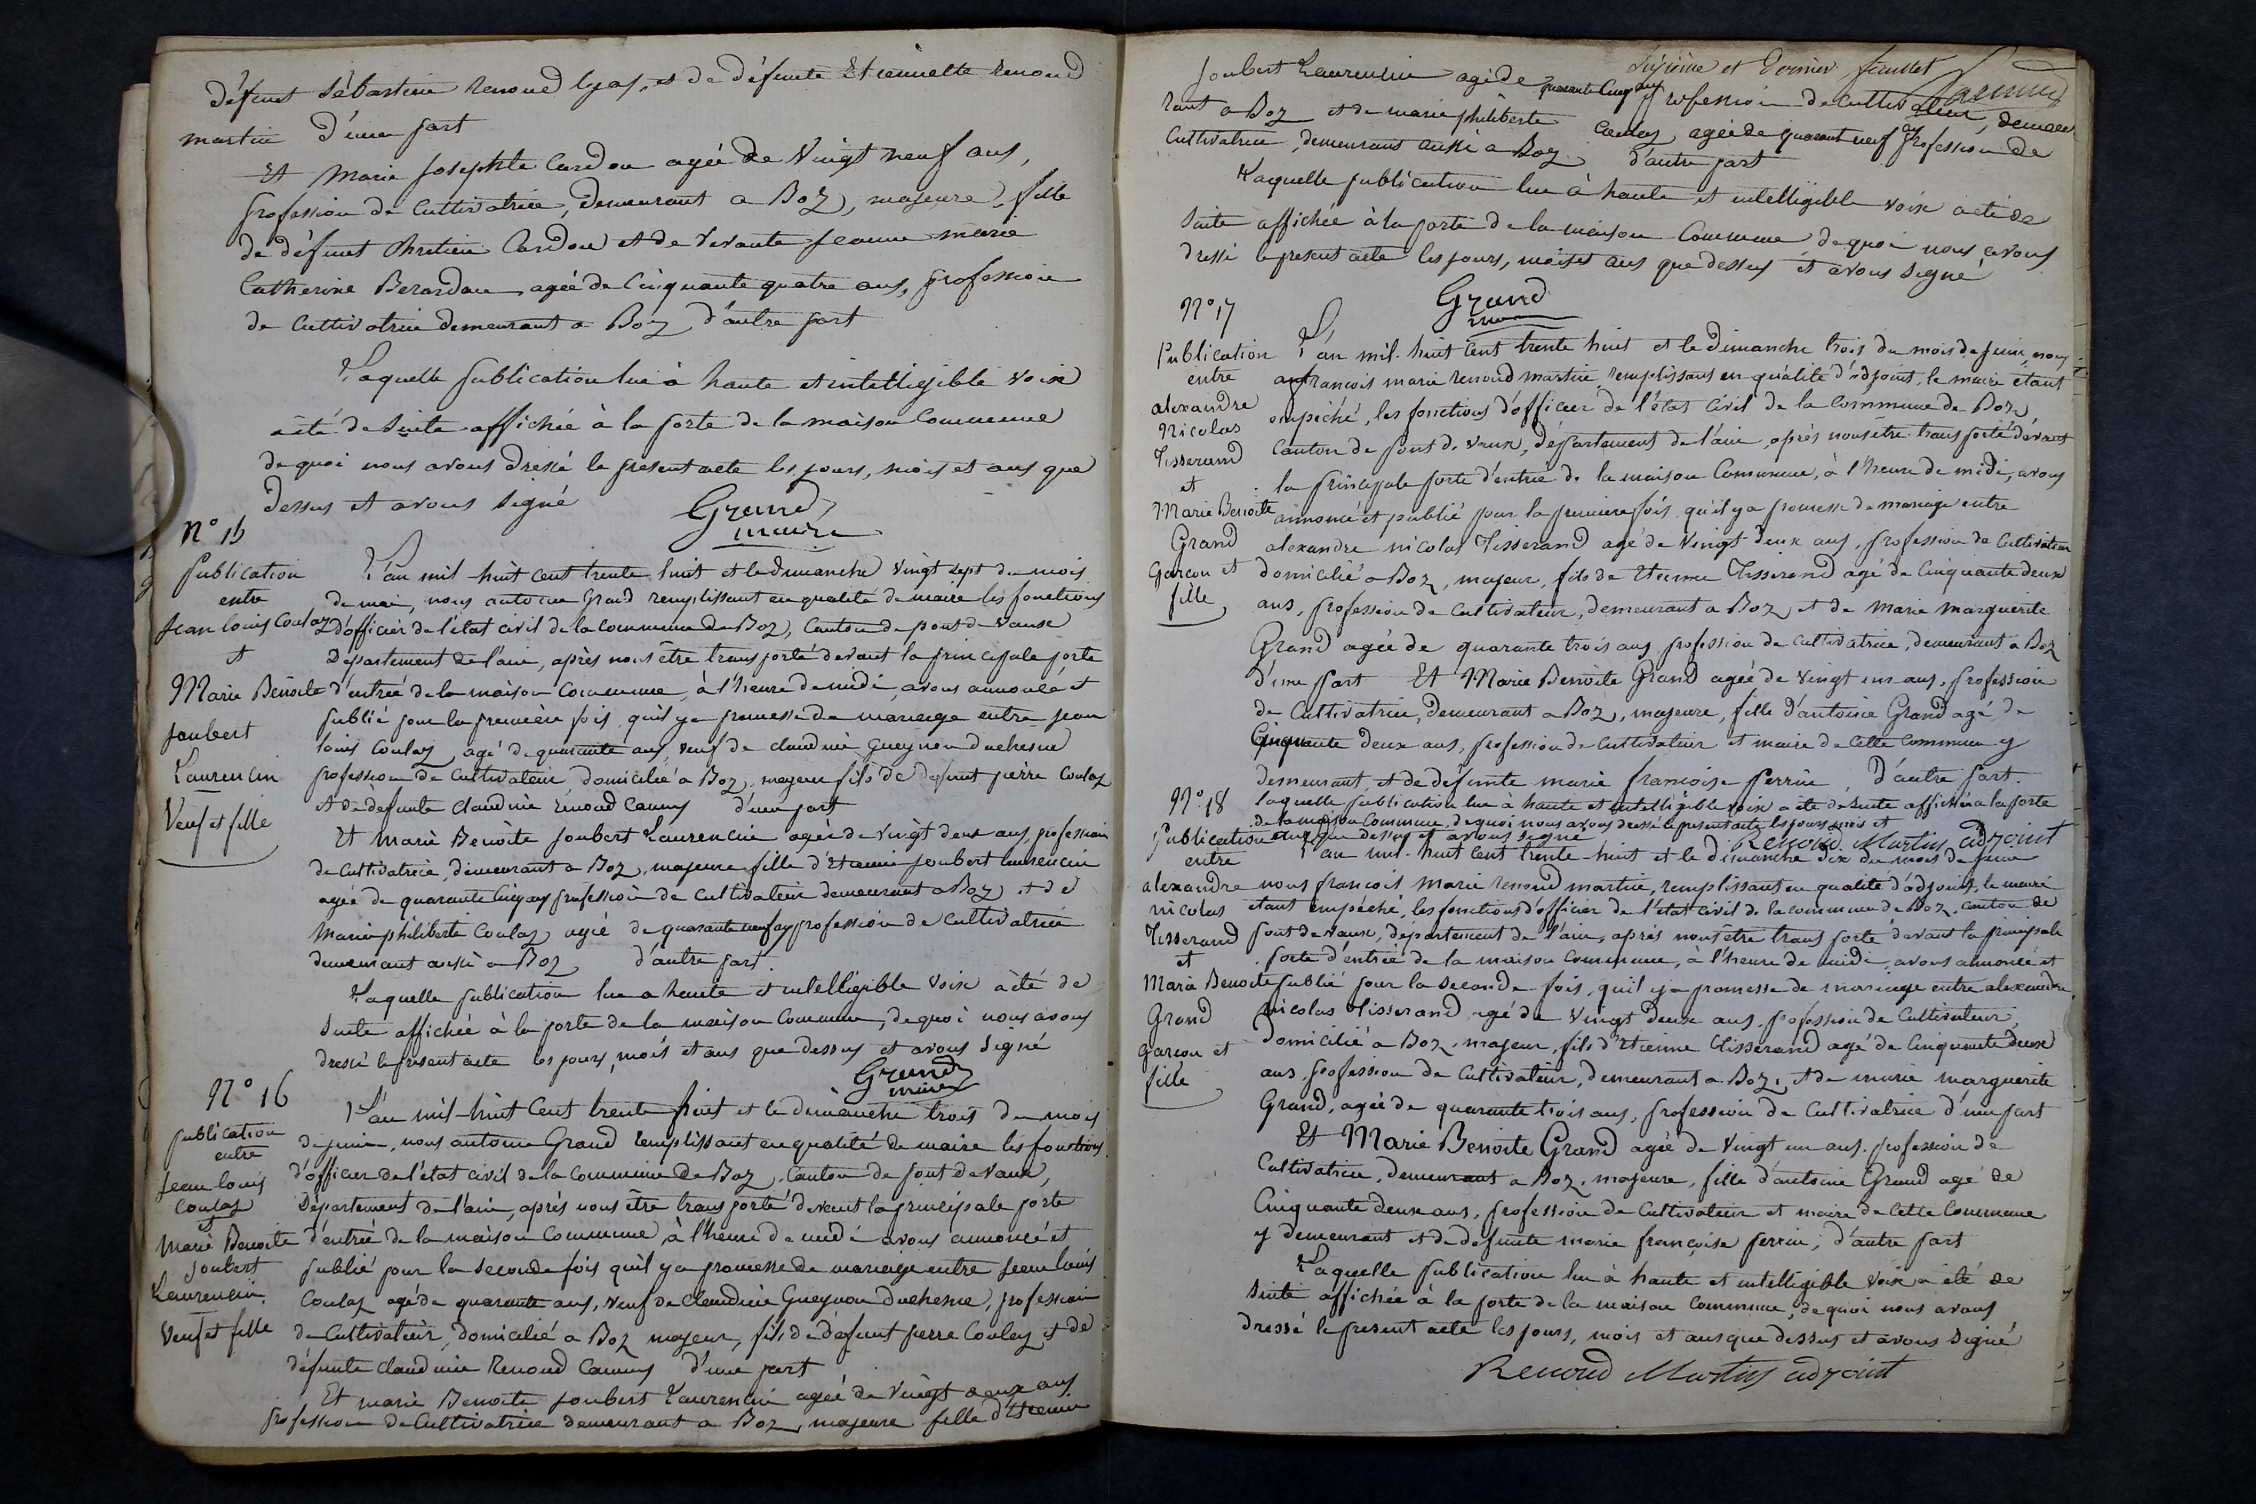 défunt Sébastien Renoud lyas, et de défunte Etiennette Renoud
martin d'une part
Et Marie Josephte Cardon agée de Vingt neuf ans,
profession de Cultivatrice, demeurant a Boz, majeure, fille
de défunt Chretien Cardon et de vivante Jeanne marie
Catherine Berardan agée de Cinquante quatre ans, profession
de Cultivatrice demeurant a Boz d'autre part
Laquelle publication lue à haute et intelligible voix
a été de Suite affichée à la porte de la maison Commune
de quoi nous avons dressé le present acte les jours, mois et ans que
dessus et avons signé
Grand
maire
N° 15
Publication
entre
Jean louis Coulaz
et
Marie Benoite
Joubert
Laurencin
Veuf et fille
L'an mil huit cent trente huit et le dimanche vingt sept du mois
de mai, nous antoine Grand remplissant en qualité de maire les fonctions
d'officier de l'état civil de la commune de Boz, Canton de pont de vaux
département de l'ain, après nous être transporté devant la principale porte
d'entrée de la maison Commune, à l'heure de midi, avons annoncé et
publié pour la première fois qu'il y a promesse de mariage entre jean
louis Coulaz agé de quarante ans, veuf de claudine Gueynon duchesne
profession de Cultivateur domicilié a Boz, majeur fils de défunt pierre Coulaz
et de défunte claudine renoud Camus d'une part
Et marie Benoite Joubert Laurencin agée de vingt deux ans, profession
de Cultivatrice, demeurant a Boz, majeure fille d'Etienne Joubert laurencin
agée de quarante Cinq ans profession de Cultivateur demeurant a Boz et de
Marie philiberte Coulaz agée de quarante neuf ans profession de Cultivatrice
demeurant aussi a Boz d'autre part.
Laquelle publication lue a haute et intelligible voix a été de
Suite affichée à la porte de la maison Commune, de quoi nous avons
dressé le present acte les jours, mois et ans que dessus et avons Signé
Grand
maire
N° 16
publication
entre
jean louis
Coulaz
et
Marie Benoite
Joubert
Laurencin
Veuf et fille
L'an mil huit Cent trente huit et le dimanche trois du mois
de juin, nous antoine Grand remplissant en qualité de maire les fonctions
d'officier de l'état civil de la Commune de Boz, Canton de pont de vaux,
Département de l'ain, après nous être transporté devant la principale porte
d'entrée de la maison Commune, à l'heure de midi avons annoncé et
publié pour la seconde fois qu'il y a promesse de mariage entre jean louis
Coulaz agé de quarante ans, veuf de claudine Gueynon duchesne, profession
de Cultivateur, domicilié a Boz majeur, fils de défunt pierre Coulaz et de
défunte claudine Renoud Camus d'une part
Et marie Benoite Joubert Laurencin agée de vingt deux ans
profession de Cultivatrice demeurant a Boz, majeure fille d'Etienne
Sixieme et Dernier feuillet
Joubert Laurencin agé de quarante Cinq ans profession de Cultivateur, demeu
rant a Boz et de marie philiberte Coulaz agée de quarante neuf ans profession de
Cultivatrice, demeurant aussi a Boz d'autre part
Laquelle publication lue à haute et intelligible voix a été de
Suite affichée à la porte de la maison Commune de quoi nous avons
dressé le present acte les jours, mois et ans que dessus et avons signé
Grand
maire
N° 17
Publication
entre
alexandre
Nicolas
Tisserand
et
Marie Benoite
Grand
Garçon et
fille
L'an mil huit Cent trente huit et le dimanche trois du mois de juin, nous
françois marie renoud martin, remplissant en qualité d'adjoint, le maire étant
empéché, les fonctions d'officier de l'état Civil de la Commune de Boz,
Canton de pont de vaux, département de l'ain, après nous être transporté devant
la principale porte d'entrée de la maison Commune, à l'heure de midi, avons
annoncé et publié pour la premiere fois qu'il y a promesse de mariage entre
alexandre nicolas Tisserand agé de vingt deux ans, profession de Cultivateur
domicilié a Boz, majeur, fils de Etienne Tisserand agé de Cinquante deux
ans, profession de Cultivateur, demeurant a Boz et de Marie marguerite
Grand agée de quarante trois ans profession de cultivatrice, demeurant a Boz
d'une part Et Marie Benoite Grand agée de vingt un ans, profession
de Cultivatrice, demeurant a Boz, majeure, fille d'antoine Grand agé de
Cinquante deux ans, profession de Cultivateur et maire de Cette Commune y
demeurant, et de défunte marie françoise perrin d'autre part.
laquelle publication lue à haute et intelligible voix a été de Suite affichée a la porte
de la maison Commune, de quoi nous avons dressé le present acte les jours mois et
ans que dessus et avons signé
Renoud Martin adjoint
N° 18
Publication
entre
alexandre
nicolas
Tisserand
et
Marie Benoite
Grand
Garçon et
fille
L'an mil huit Cent trente huit et le dimanche dix du mois de juin
nous françois Marie renoud martin, remplissant en qualité d'adjoint, le maire
etant empéché, les fonctions d'officier de l'état civil de la commune de Boz, canton de
pont de vaux, département de l'ain, après nous être transporté devant la principale
porte d'entrée de la maison Commune, à l'heure de midi, avons annoncé et
publié pour la seconde fois, qu'il y a promesse de mariage entre alexandre
nicolas Tisserand agé de vingt deux ans, profession de Cultivateur
domicilié a Boz, majeur, fils d'Etienne Tisserand agé de Cinquante deux
ans, profession de Cultivateur, demeurant a Boz, et de marie marguerite
Grand, agée de quarante trois ans, profession de Cultivatrice d'une part
Et Marie Benoite Grand agée de vingt un ans, profession de
Cultivatrice, demeurant a Boz, majeure, fille d'antoine Grand agé de
Cinquante deux ans, profession de Cultivateur et maire de Cette Commune
y demeurant et de défunte marie françoise perrin, d'autre part
Laquelle publication lue à haute et intelligible voix a été de
suite affichée à la porte de la maison Commune, de quoi nous avons
dressé le present acte les jours, mois et ans que dessus et avons Signé
Renoud Martin adjoint